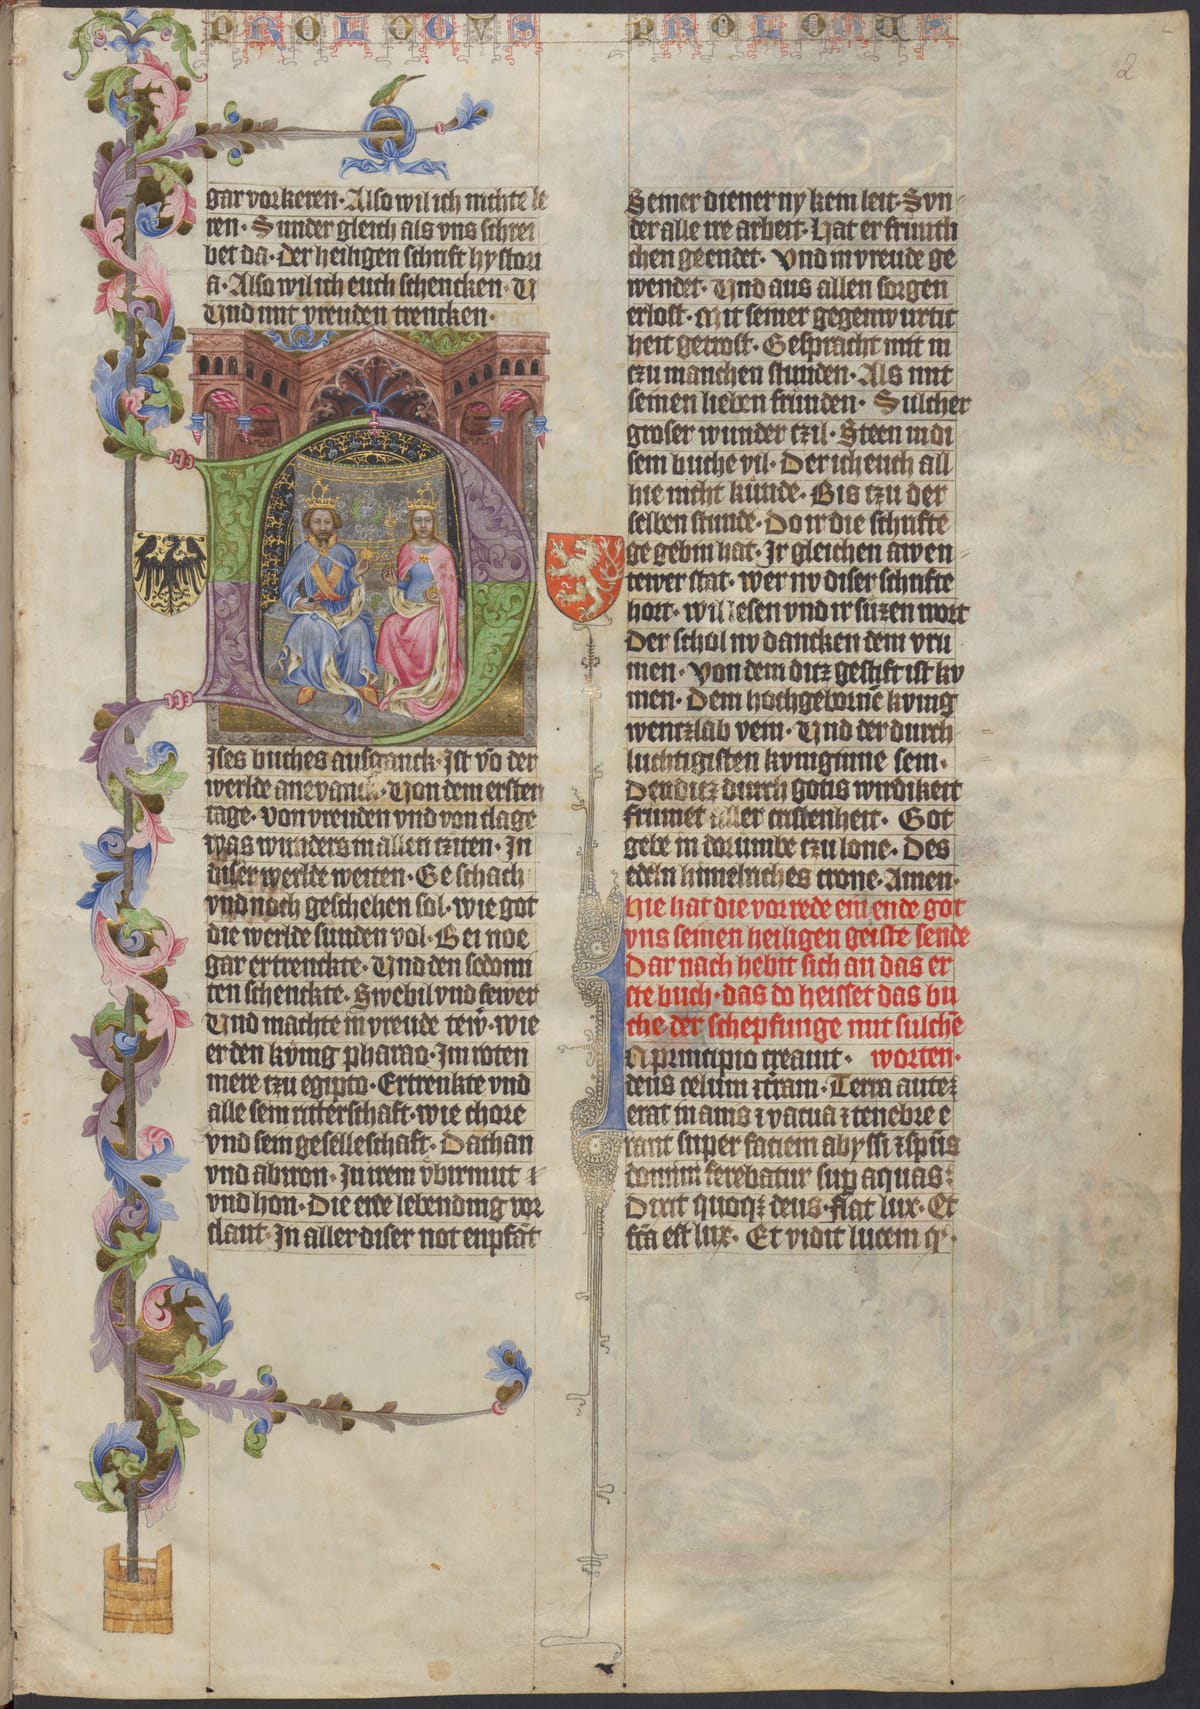 PROLOGVS
PROLOGUS
2
gar vorkeren · Also wil ich nicht le
ren · Sunder gleich als vns schrei
bet da · der heiligen schrift hystori
a · Also wil ich euch schencken · V
Vnd mit vreuden trencken ·
Ises buches aufganck · Ist vō der
werlde anevanck · Von dem ersten
tage · von vreuden vnd von clage
was wunders in allen cziten · In
diser werlde weiten · Geschach
vnd noch geschehen sol · wie got
die werlde sunden vol · Bei noe
gar ertrenckte · Vnd den sodomi
ten schenckte · Swebil vnd fewer
Vnd machte in vreude tew̄ · wie
er den kv̊nig pharao · Im roten
mere czu egipto · Ertrenkte vnd
alle sein ritterschaft · wie chore
vnd sein geselleschaft · Dathan
vnd abiron · In irem v̊birmut
vnd hon · Die erde lebending vor
slant · In aller diser not enpfāt
Seiner diener ny kein leit · Svn
der alle ire arbeit · Hat er frunth
chen geendet · Vnd in vreude ge
wendet · Vnd aus allen sorgen
erlost · Mit seiner gegenwurtic
heit getrost · Gespracht mit in
czu manchen stunden · Als mit
seinen lieben frunden · Sulcher
groser wunder czil · Steen in di
sem buche vil · Der ich euch all
hie nicht kunde · Bis czu der
selben stunde · Do ir die schrifte
gegebin hat · Ir gleichen awen
tewer stat · wer nv diser schrifte
hort · wil lesen vnd ir suzen wort
Der schol nv dancken dem vru
men · Von dem ditz gestift ist kv
men · Dem hochgebornē kvnig
wentzlab vein · Vnd der durch
luchtigisten kvniginne sein ·
Den ditz durch gotis wirdikeit
frumet aller cristenheit · Got
gebe in dorumbe czu lone · Des
edeln himelriches crone · Amen ·
Hie hat die vorrede ein ende got
vns seinen heiligen geiste sende
Dar nach hebit sich an das er
ste buch · das do heisset das bu
che der schepfunge mit sulchē
worten ·
In principio creauit ·
deus celum ⁊ tr̄am · Terra autez
erat inanis ⁊ vacua ⁊ tenebre e
rant super faciem abyssi ⁊ sp̄us
domini ferebatur sup aquas ·
Dixit quoqꝫ deus · fiat lux · Et
fc̄a est lux · Et vidit lucem qͥ ·